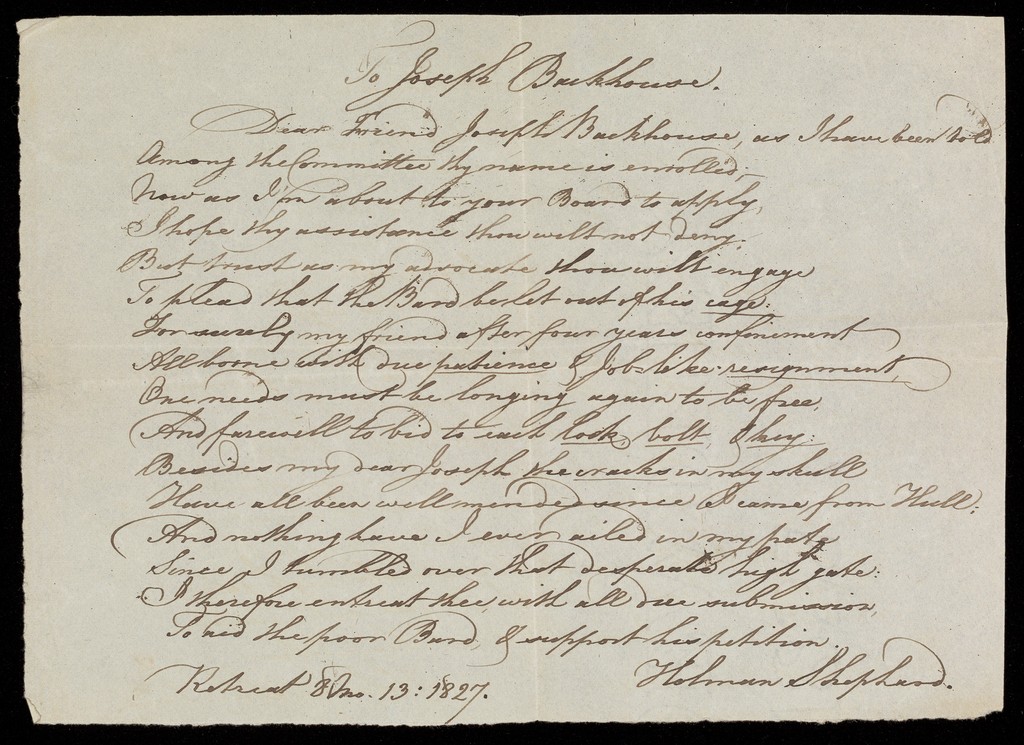 To Joseph Backhouse.
Dear Friend Joseph Backhouse, as I have been told
Among the Committee thy name is enrolled;—
Now as I'm about to your Board to apply,
I hope thy assistance thou wilt not deny.
But trust as my advocate thou wilt engage
To plead that the Bard be let out of his cage:
For surely my friend after four years confinement
All borne with due patience & Job-like-resignment,
One needs must be longing again to be free,
And farewell to bid to each lock, bolt, & key:
Besides my dear Joseph the cracks in my skull
Have all been well mended since I came from Hull;
And nothing have I ever ailed in my pate
Since I tumbled over that desperate high gate:
I therefore entreat thee, with all due submission,
To aid the poor Bard, & support his petition.
Holman Shephard.
Retreat 8 Mo. 13: 1827.